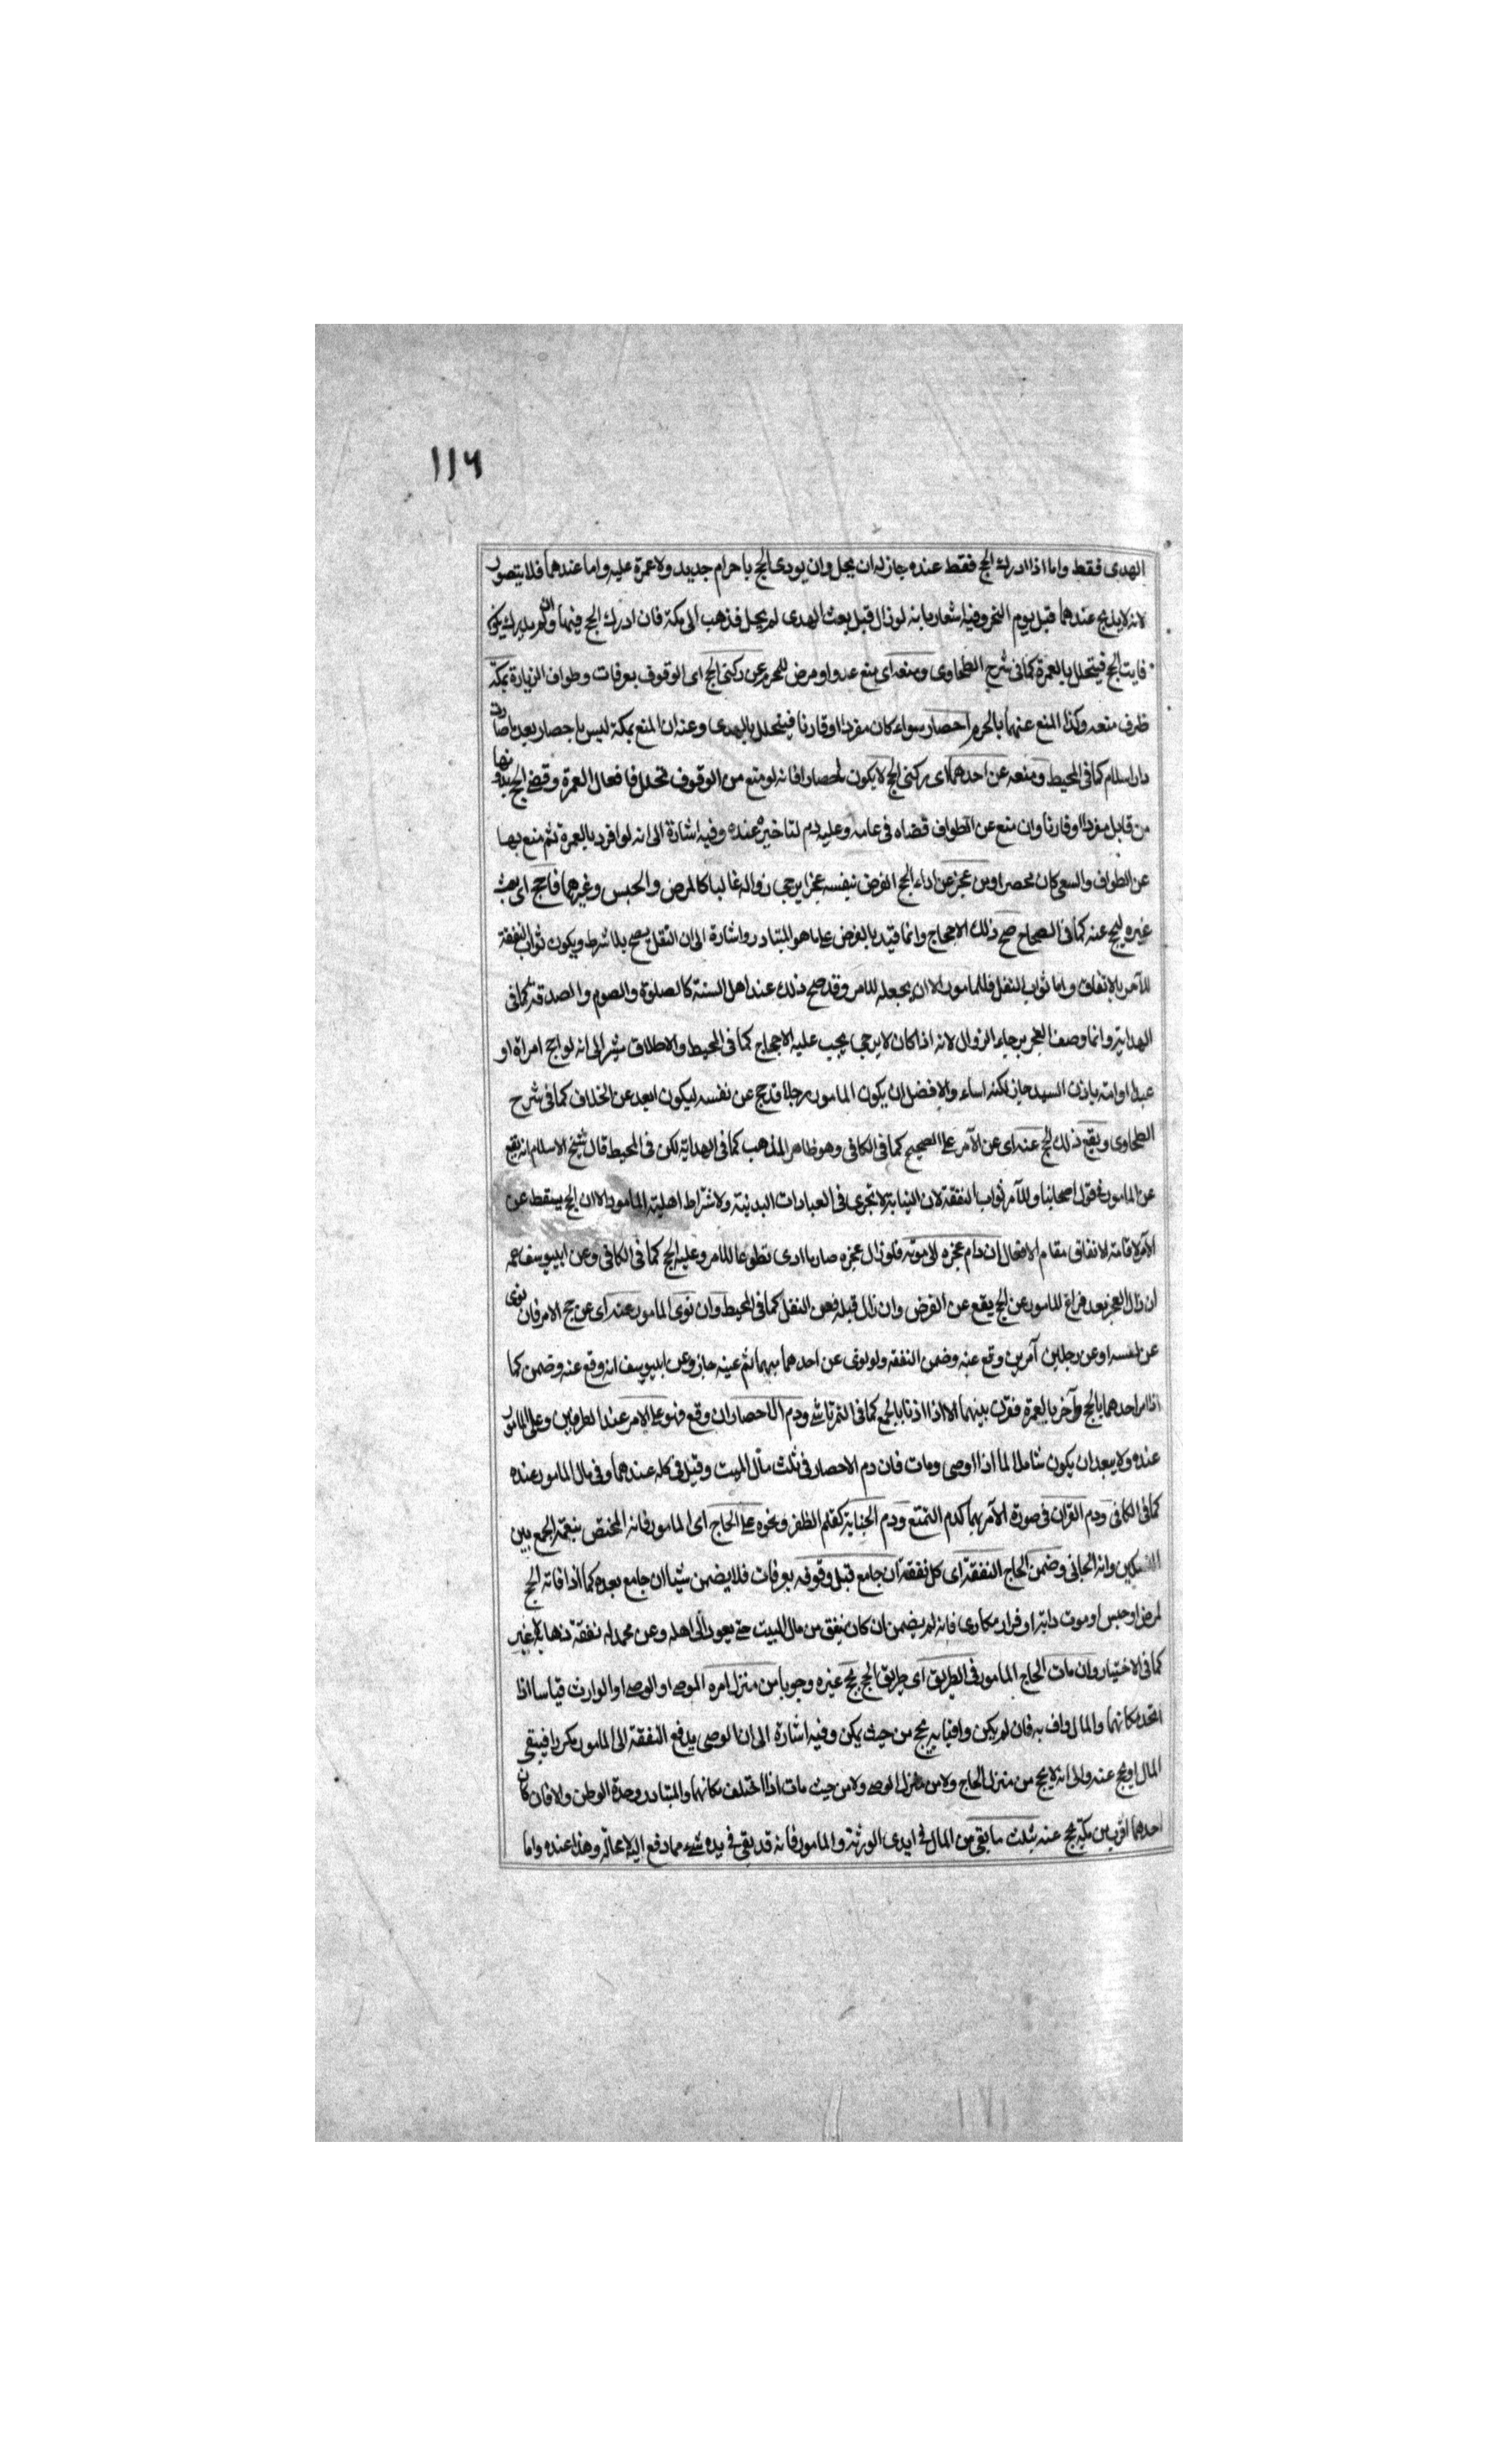 ١١٦
الهدى فقط واما اذا ادرك الحج فقط عنده جاز له ان يحل وان يودى الحج باحرام جديد ولا عمرة عليه واما عندهما فلا يتصور
لانه لا يذبح عندهما قبل يوم النحر وفيه اشعار بانه لو زال قبل بعث الهدى لم يحل فذهب الى مكة فان ادرك الحج فبها وان لم يدرك يكون
فايت الحج فيتحلل بالعمرة كما فى شرح الطحاوى ومنعه اى منع عدو او مرض للمحرم عن ركنى الحج اى الوقوف بعرفات وطواف الزيارة بمكة
ظرف منعه وكذا المنع عنهما بالحرم احصار سواء كان مفردا او قارنا فيتحلل بالهدى وعنه ان المنع بمكة ليس باحصار بعد ما صارت
دار اسلام كما فى المحيط ومنعه عن احدهما اى ركنى الحج لا يكون احصارا فانه لو منع من الوقوف تحلل بافعال العمرة وقضى الحج بدونها
من قابل مفردا او قارنا وان منع عن الطواف قضاه فى عامه وعليه دم لتاخيره عنده وفيه اشارة الى انه لو افرد بالعمرة ثم منع بها
عن الطواف والسعى كان محصرا ومن عجز عن اداء الحج الفرض بنفسه عجزا يرجى زواله غالبا كالمرض والحبس وغيرهما فاحج اى بعث
غيره ليحج عنه كما فى الصحاح صح ذلك الاحجاج وانما قيد بالفرض على ما هو المتبادر واشارة الى ان النفل يصح بلا شرط ويكون ثواب النفقة
للآمر بالاتفاق واما ثواب النفل فللمامور الا ان يجعله للآمر وقد صح ذلك عند اهل السنة كالصلوة والصوم والصدقة كما فى
الهداية وانما وصف العجز برجاء الزوال لانه اذا كان لا يرجى يجب عليه الاحجاج كما فى المحيط والاطلاق يشير الى انه لو احج امراة او
عبدا او امة باذن السيد جاز لكنه اساء والافضل ان يكون المامور رجلا قد حج عن نفسه ليكون ابعد عن الخلاف كما فى شرح
الطحاوى ويقع ذلك الحج عنه اى عن الآمر على الصحيح كما فى الكافى وهو ظاهر المذهب كما فى الهداية لكن فى المحيط قال شيخ الاسلام انه يقع
عن المامور فى قول اصحابنا وللآمر ثواب النفقة لان النيابة لا تجرى فى العبادات البدنية ولاشتراط اهلية المامور الا ان الحج يسقط عن
الآمر لاقامة الانفاق مقام الافعال ان دام عجزه الى موته فلو زال عجزه صار ما ادى تطوعا للآمر وعليه الحج كما فى الكافى وعن ابيوسف رحمه
ان زال العجز بعد فراغ المامور عن الحج يقع عن الفرض وان زال قبله فعن النفل كما فى المحيط وان نوى المامور عنه اى عن حج الامر فان نوى
عن نفسه او عن رجلين آمرين وقع عنه وضمن النفقة ولو نوى عن احدهما مبهما ثم عينه جاز وعن ابيوسف انه وقع عنه وضمن كما
اذا امر احدهما بالحج وآخر بالعمرة فقرن بينهما الا اذا اذنا بالجمع كما فى التمرتاشى ودم الاحصار ان وقع فهو على الامر عند الطرفين وعلى المامور
عنده ولا يبعد ان يكون شاملا لما اذا اوصى ومات فان دم الاحصار فى ثلث مال الميت وقيل فى كله عندهما وفى مال المامور عنده
كما فى الكافى ودم القران فى صورة الآمر بهما كدم التمتع ودم الجناية كقلم الظفر ونحوه على الحاج اى المامور فانه المختص بنعمة الجمع بين
النسكين وانه الجانى وضمن الحاج النفقة اى كل نفقة ان جامع قبل وقوفه بعرفات فلا يضمن شيئا ان جامع بعده كما اذا فاته الحج
لمرض او حبس او موت دابة او فرار مكارى فانه لم يضمن ان كان ينفق من مال الميت حتى يعود الى اهله وعن محمد له نفقة ذهابه لا غير
كما فى الاختيار وان مات الحاج المامور فى الطريق اى طريق الحج يحج غيره وجوبا من منزل امره الموصى او الوصى او الوارث قياسا اذا
اتحد مكانهما والمال واف به فان لم يكن وافيا به يحج من حيث يمكن وفيه اشارة الى ان الوصى يدفع النفقة الى المامور مكررا فيبقى
المال او يحج عنه والى انه لا يحج من منزل الحاج ولا من منزل الوصى ولا من حيث مات اذا اختلف مكانهما والمتبادر وحدة الوطن والا فان كان
احدهما اقرب من مكة يحج عنه بثلث ما بقى من المال فى ايدى الورثة والمامور فانه قد بقى فى يده شىء مما دفع اليه لا محالة وهذا عنده واما